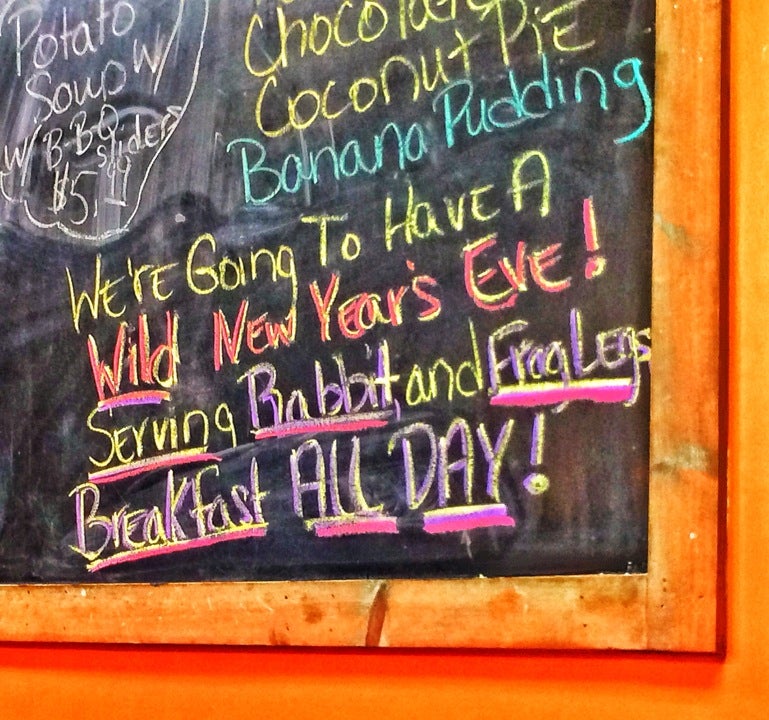 Potato
Soup W/
W/ B-B-Q
Sliders
Chocolate
Coconut Pie
Banana Pudding
We're Going To Have A
Wild New Year's Eve!
Serving Rabbit, and Frog Legs
Breakfast ALL DAY!